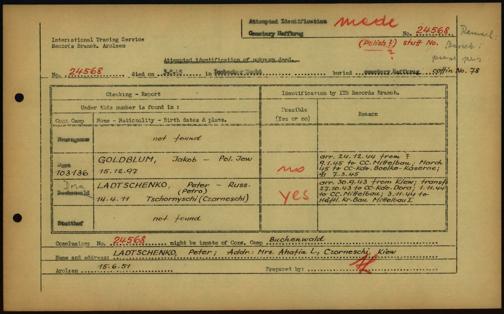 Attempted Identification
Cemetery Haffkrug
made
International Tracing Service
Records Branch, Arolsen
No. 24568
(Polish?) stuff No.
?
Attempted identification of unknown dead.
No. 24568 died on in buried Cemetery Haffkrug coffin No. 78
Checking - Report
Identification by ITS Records Branch.
Under this number is found in:
Possible
(Yes or no)
Reason
Conc. Camp
Name - Nationality - Birth dates & place.
Neuengamme
not found
103136
GOLDBLUM, Jakob - Pol. Jew
15.12.97
no
arr. 24.12.44 from ?
9.1.45 to CC. Mittelbau; March
45 to CC-Kdo. Boelke-Kaserne;
7.3.45
Dora
Buchenwald
LADTSCHENKO, Peter - Russ.
(Petro)
14.4.11 Tschornyschi (Czorneschi)
yes
arr. 30.9.43 from Kiew; transf.
27.10.43 to CC-Kdo. Dora; 1.11.44
to CC. Mittelbau; 3.11.44 to
Bau Mittelbau I.
Stutthof
not found
Conclusion: No. 24568 might be inmate of Conc. Camp Buchenwald
Name and address: LADTSCHENKO, Peter; Addr: Mrs. Ahafia L., Czorneschi, Kiew
Arolsen 15.6.51 Prepared by: